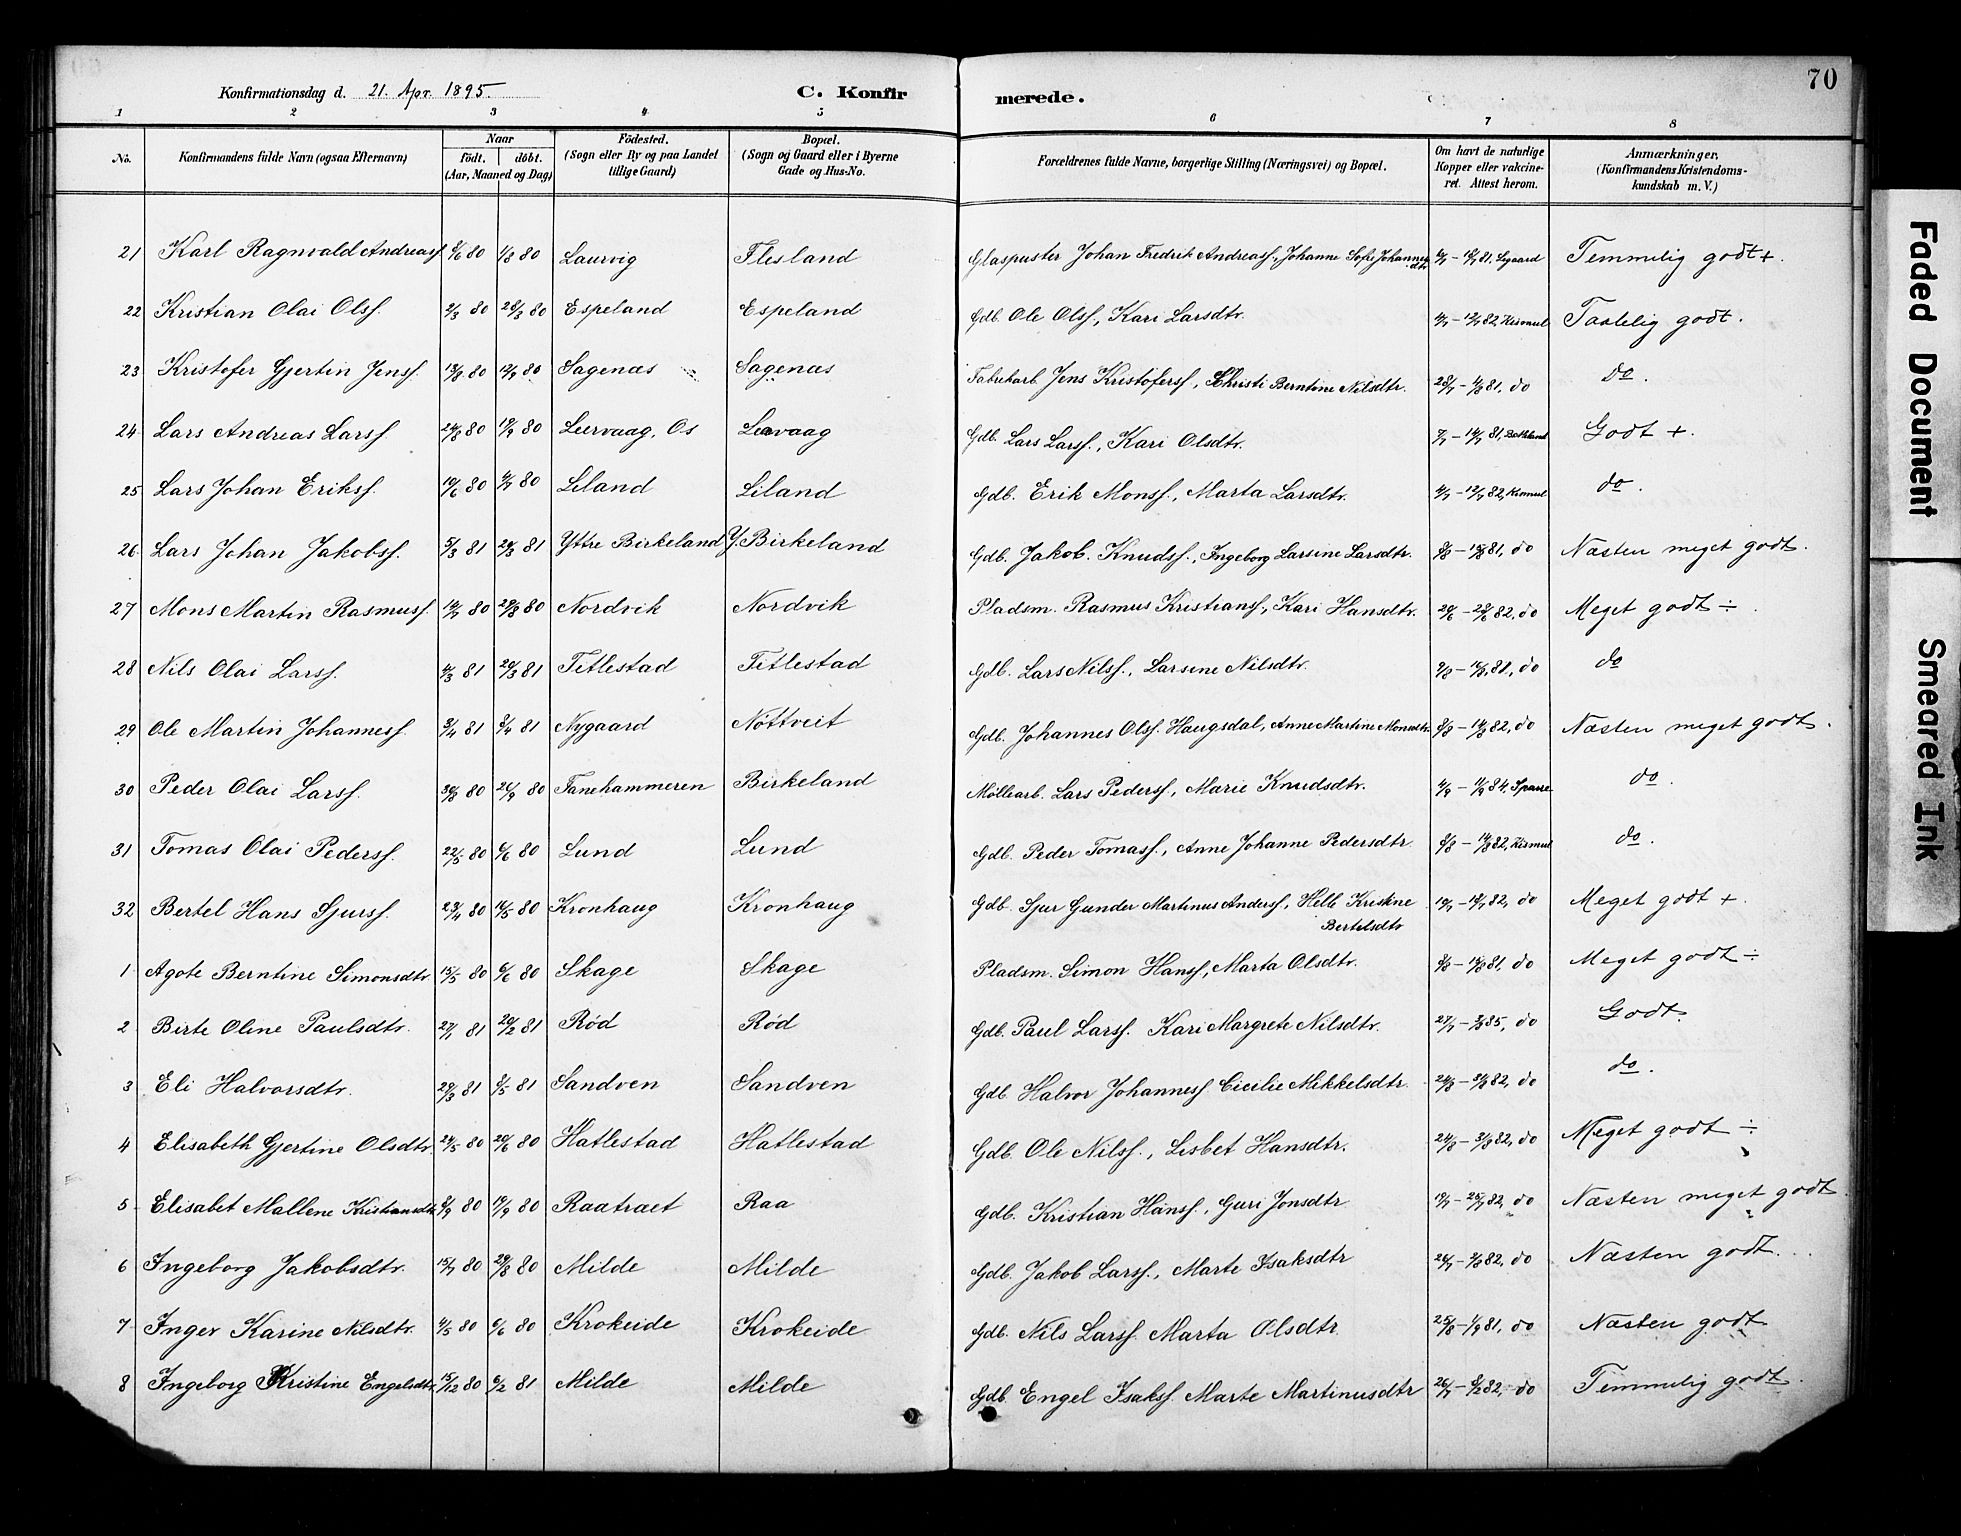 70
Konfirmationsdag d. 21. Apr. 1895.
C. Konfir
merede.
1 2 3 4 5 6 7 8
No. Konfirmandens fulde Navn (ogsaa Efternavn) Naar født. døbt. (Aar, Maaned og Dag) Fødested. (Sogn eller By og paa Landet tillige Gaard) Bopæl. (Sogn og Gaard eller i Byerne Gade og Hus-No. Forældrenes fulde Navne, borgerlige Stilling (Næringsvei) og Bopæl. Om havt de naturlige Kopper eller vakcineret. Attest herom. Anmærkninger. (Konfirmandens Kristendomskundskab m. V.)
21 Karl Ragnvald Andreasf. 80 1/8 80 Laurvig Flesland Glaspuster Johan Fredrik Andreasf., Johanne Sofie Johannesdtr 81. Temmelig godt +.
22 Kristian Olai Olsf. 2/3 80 28/3 80 Espeland Espeland Gdb. Ole Olsf., Kari Larsdtr. 82, Kismul Taalelig godt.
23 Kristofer Gjertin Jensf. 13/8 80 12/9 80 Sagenæs Sagenæs Fabrikarb. Jens Kristofersf., Christi Berntine Nilsdtr. 28/7 - 4/8 81, do do.
24 Lars Andreas Larsf. 24/8 80 19/9 80 Leervaag, Os Leervaag Gdb. Lars Larsf., Kari Olsdtr. 7/7 - 14/7 81, Godt +.
25 Lars Johan Eriksf. 10/6 80 4/7 80 Liland Liland Gdb. Erik Monsf., Marta Larsdtr. 12/7 82, Kismul do.
26 Lars Johan Jakobsf. 5/3 81 20/3 81 Yttre Birkeland Y. Birkeland Gdb. Jakob. Knudsf., Ingeborg Larsine Larsdtr. 81, do Næsten meget godt.
27 Mons Martin Rasmusf. 80 29/8 80 Nordvik Nordvik Pladsm. Rasmus Kristiansf., Kari Hansdtr. 82, do Meget godt ÷.
28 Nils Olai Larsf. 4/3 81 20/3 81 Titlestad Titlestad Gdb. Lars Nilsf., Larsine Nilsdtr. 81, do do
29 Ole Martin Johannesf. 3/4 81 81 Nygaard Nøttveit Gdb. Johannes Olsf. Haugsdal, Anne Martine Monsdtr. 82, do Næsten meget godt.
30 Peder Olai Larsf. 80 26/9 80 Fanehammeren Birkeland Møllearb. Lars Pedersf., Marie Knudsdtr. 84. Sparre do.
31 Tomas Olai Pedersf. 22/5 80 6/6 80 Lund Lund Gdb. Peder Tomasf., Anne Johanne Pedersdtr. 82, Kismul do.
32 Bertel Hans Sjursf. 23/4 80 16/5 80 Kronhaug Kronhaug Gdb. Sjur Gunder Martinus Andersf., Helle Kristine Bertelsdtr 82, do Meget godt +.
1 Agote Berntine Simonsdtr. 15/5 80 6/6 80 Skage Skage Pladsm. Simon Hansf., Marta Olsdtr. 81, do Meget godt ÷
2 Birte Oline Paulsdtr. 27/1 81 20/2 81 Rød Rød Gdb. Paul Larsf. Kari Margrete Nilsdtr. 85, do Godt.
3 Eli Halvorsdtr. 29/3 81 8/5 81 Sandven Sandven Gdb. Halvor Johannesf. Cicilie Mikkelsdtr. 24/8 - 31/8 82, do do.
4 Elisabeth Gjertine Olsdtr. 24/5 80 20/6 80 Hatlestad Hatlestad Gdb. Ole Nilsf., Lisbet Hansdtr. 24/8 - 31/8 82, do Meget godt ÷
5 Elisabet Mallene Kristiansdtr. 80 19/9 80 Raatræet Raa Gdb. Kristian Hansf., Guri Jonsdtr 19/7 - 26/7 82, do Næsten meget godt.
6 Ingeborg Jakobsdtr. 15/7 80 29/8 80 Milde Milde Gdb. Jakob Larsf., Marte Isaksdtr 26/7 - 2/8 82, do Næsten godt.
7 Inger Karine Nilsdtr. 4/5 80 6/6 80 Krokeide Krokeide Gdb. Nils Larsf. Marta Olsdtr. 25/8 - 1/9 81, do Næsten godt
8 Ingeborg Kristine Engelsdtr. 15/12 80 6/2 81 Milde Milde Gdb. Engel Isaksf. Marte Martinusdtr 82, do Temmelig godt.
Faded Document
Smeared Ink